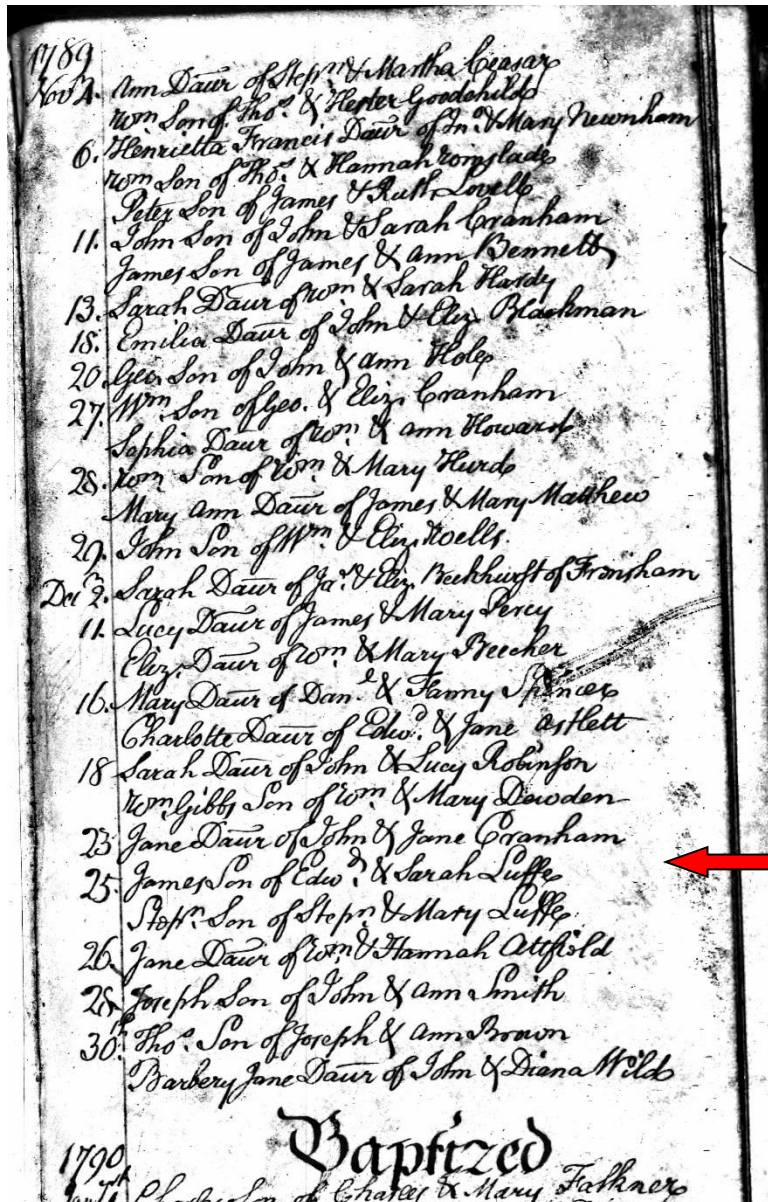 1789
Novr 2. Ann Daur of Stepn & Martha Ceasar
Wm Son of Thos. & Hester Goodchild
6. Henrietta Francis Daur of Jno & Mary Newnham
Wm Son of Thos. & Hannah Wmslade
Peter Son of James & Ruth Lovell
11. John Son of John & Sarah Cranham
James Son of James & Ann Bennett
13. Sarah Daur of Wm & Sarah Hardy
18. Emilia Daur of John & Eliz. Blackman
20 Geo. Son of John & Ann Hole
27. Wm. Son of Geo. & Eliz. Cranham
Sophia Daur of Wm. & Ann Howard
28. Wm Son of Wm & Mary Hurd
Mary Ann Daur of James & Mary Matthew
29. John Son of Wm & Eliz.
Decr 2. Sarah Daur of Jas. & Eliz. Beckhurst of Frinsham
11. Lucy Daur of James & Mary Percy
Eliz. Daur of Wm & Mary Beecher
16. Mary Daur of Danl & Fanny Spencer
Charlotte Daur of Edwd. & Jane Astlett
18 Sarah Daur of John & Lucy Robinson
Wm. Gibbs Son of Wm. & Mary Dewden
23 Jane Daur of John & Jane Cranham
25. James Son of Edwd. & Sarah Luffe
Stepn. Son of Stepn & Mary Luffe
26. Jane Daur of Wm & Hannah Attfield
28. Joseph Son of John & Ann Smith
30th. Thos. Son of Joseph & Ann Brown
Barbery Jane Daur of John & Diana Wild
Baptized
1790
Son of Charles & Mary Falkner